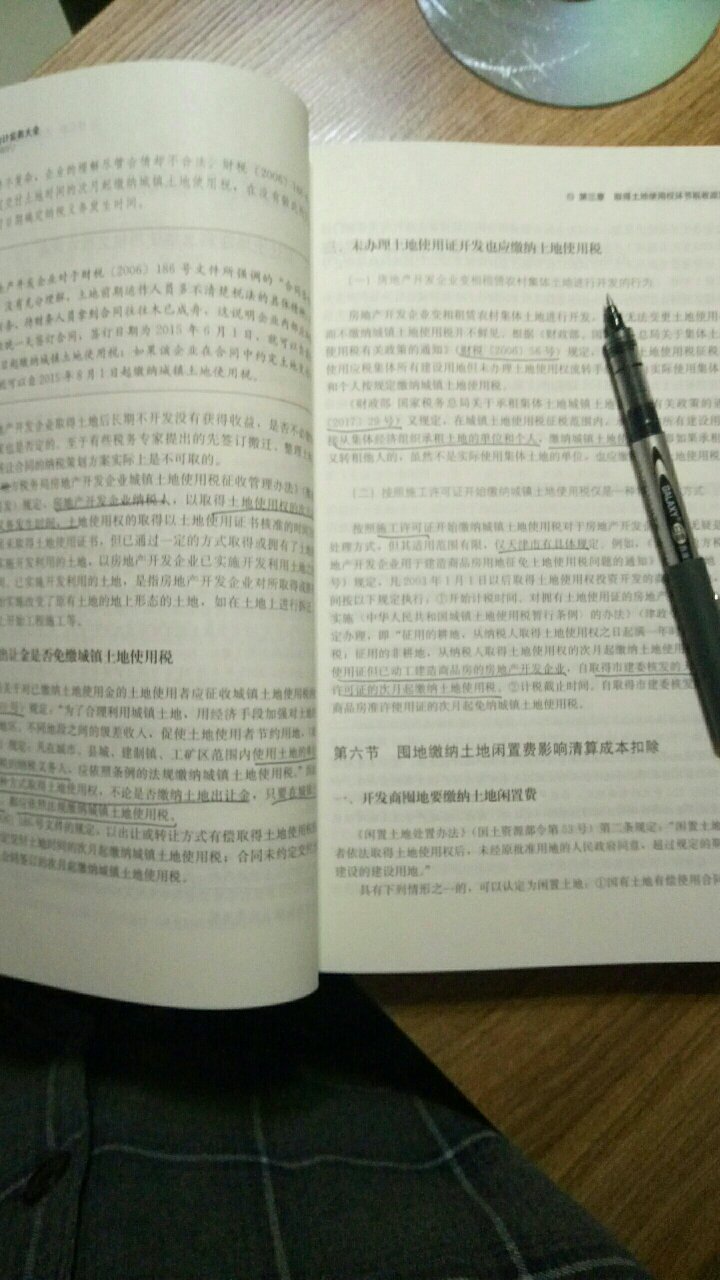 计实务大全
企业的理解尽管合情却不合法，财税〔2006〕186
定交付土地时间的次月起缴纳城镇土地使用税，在没有
日期确定纳税义务发生时间。
地产开发企业对于财税〔2006〕186 号文件所强调的“合同
没有充分理解，土地前期运作人员多不清楚税法的具体
务，待财务人员拿到合同往往木已成舟，这说明企业内部
统一无签订合同，签订日期为 2015 年 6 月 1 日，就可以
日起缴纳城镇土地使用税；如果该企业在合同中约定土地
就可以自2015年8月1日起缴纳城镇土地使用税。
地产开发企业取得土地后长期不开发没有获得收益，是否不必
案也是否定的。至于有些税务专家提出的先签订搬迁、整理土地
让合同的纳税筹划方案实际上是不可取的。
地方税务局房地产开发企业城镇土地使用税征收管理办法》
发〕规定，房地产开发企业纳税人，以取得土地使用权的次
义务发生时间。土地使用权的取得以土地使用证书核准的时间
未取得土地使用证书，但已通过一定的方式取得或拥有了土地
实施开发利用的土地，以房地产开发企业已实施开发利用土地之
间。已实施开发利用的土地，是指房地产开发企业对所取得或
始实施改变了原有土地的地上形态的土地，如在土地上进行拆迁
上开始工程施工等。
出让金是否免缴城镇土地使用税
关于对已缴纳土地使用金的土地使用者应征收城镇土地使用税
规定，“为了合理利用城镇土地，用经济手段加强对土地
地区、不同地段之间的级差收入，促使土地使用者节约用地，
规定：凡在城市、县城、建制镇、工矿区范围内使用土地的单
税的纳税义务人，应依照条例的法规缴纳城镇土地使用税。”
种方式取得土地使用权，不论是否缴纳土地出让金，只要在城镇
，都应依照法规缴纳城镇土地使用税。
186 号文件的规定，以出让或转让方式有偿取得土地使用权
定交付土地时间的次月起缴纳城镇土地使用税；合同未约定交付
合同签订的次月起缴纳城镇土地使用税。
第三章 取得土地使用权环节税收
三、未办理土地使用证开发也应缴纳土地使用税
（一）房地产开发企业变相租赁农村集体土地进行开发的行为
房地产开发企业变相租赁农村集体土地进行开发，无法变更土地使用
而不缴纳城镇土地使用税并不鲜见。根据《财政部 国家总局关于集体土
使用税有关政策的通知》（财税〔2006〕56号）规定，土地使用税征税
使用应税集体所有建设用地但未办理土地使用权流转手续实际使用集体
和个人按规定缴纳城镇土地使用税。
《财政部 国家税务总局关于承租集体土地城镇土地使用有关政策的通
〔2017〕29号）又规定，在城镇土地使用税征税范围内，所有建设用
接从集体经济组织承租土地的单位和个人，缴纳城镇土地使用即如果承租
又转租他人的，虽然不是实际使用集体土地的单位，也应地使用税
（二）按照施工许可证开始缴纳城镇土地使用税仅是一种方式
按照施工许可证开始缴纳城镇土地使用税对于房地产开发无疑是
处理方式，但其适用范围有限，仅天津市有具体规定。例如，《方税
地产开发企业用于建造商品房用地征免土地使用税问题的通知》
号）规定，凡2003年1月1日以后取得土地使用权投资开发的
间按以下规定执行：①开始计税时间。对拥有土地使用证的房地产
实施〈中华人民共和国城镇土地使用税暂行条例〉的办法》（津政
定办理，即“征用的耕地，从纳税人取得土地使用权之日起满一年时
税；征用的非耕地，从纳税人取得土地使用权的次月起缴纳
使用证但已动工建造商品房的房地产开发企业，自取得市建委核发的
许可证的次月起缴纳土地使用税。②计税截止时间。自取得市建委核发
商品房准许使用证的次月起免纳城镇土地使用税。
第六节 囤地缴纳土地闲置费影响清算成本扣除
一、开发商囤地要缴纳土地闲置费
《闲置土地处置办法》（国土资源部令第53号）第二条规定：“闲置土
者依法取得土地使用权后，未经原批准用地的人民政府同意，超过规定的期
建设的建设用地。”
具有下列情形之一的，可以认定为闲置土地：①国有土地有偿使用合同
GALAXY